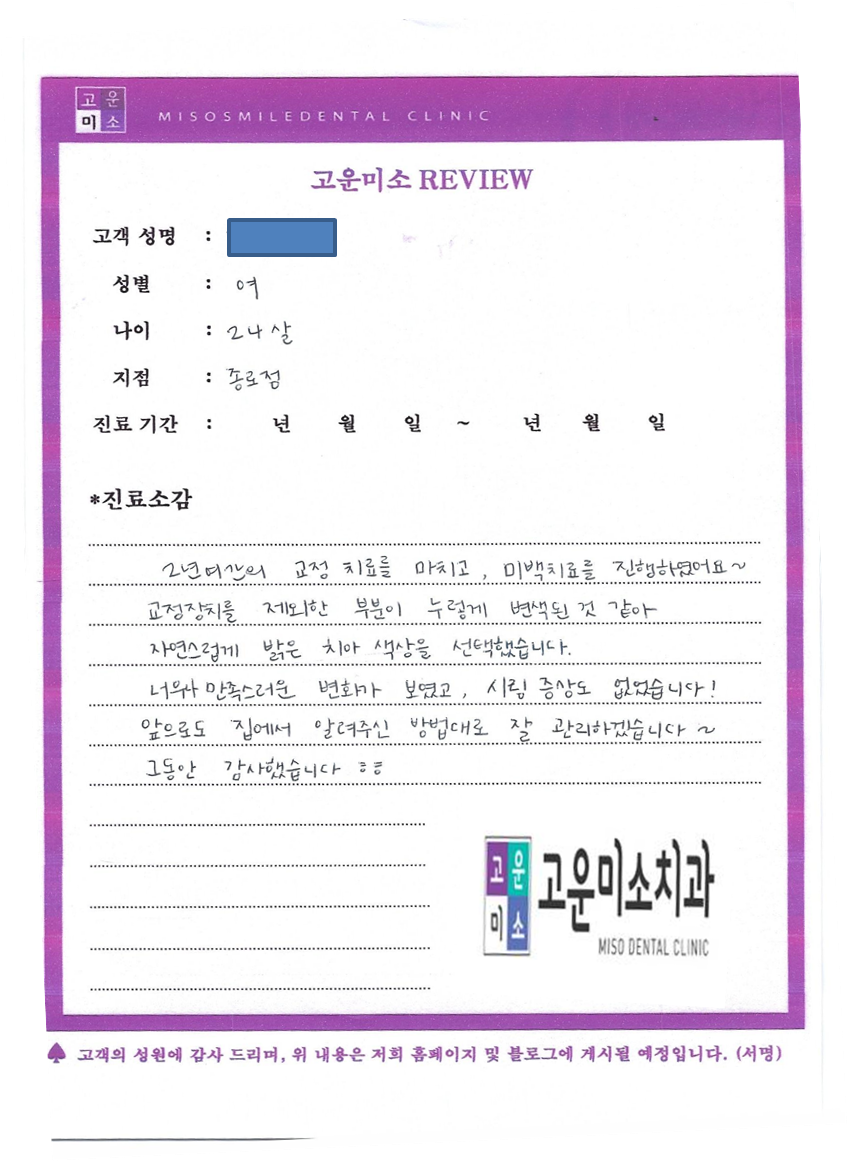 고운
미소
MISOSMILEDENTAL CLINIC
고운미소 REVIEW
고객 성명 :
성별 : 여
나이 : 24살
지점 : 종로점
진료 기간 : 년 월 일 ~ 년 월 일
*진료소감
2년여간의 교정 치료를 마치고, 미백치료를 진행하였어요~
교정장치를 제외한 부분이 누렇게 변색된 것 같아
자연스럽게 밝은 치아 색상을 선택했습니다.
너무나 만족스러운 변화가 보였고, 시림 증상도 없었습니다!
앞으로도 집에서 알려주신 방법대로 잘 관리하겠습니다~
그동안 감사했습니다 ㅎㅎ
고운
미소
고운미소치과
MISO DENTAL CLINIC
♠ 고객의 성원에 감사 드리며, 위 내용은 저희 홈페이지 및 블로그에 게시될 예정입니다. (서명)